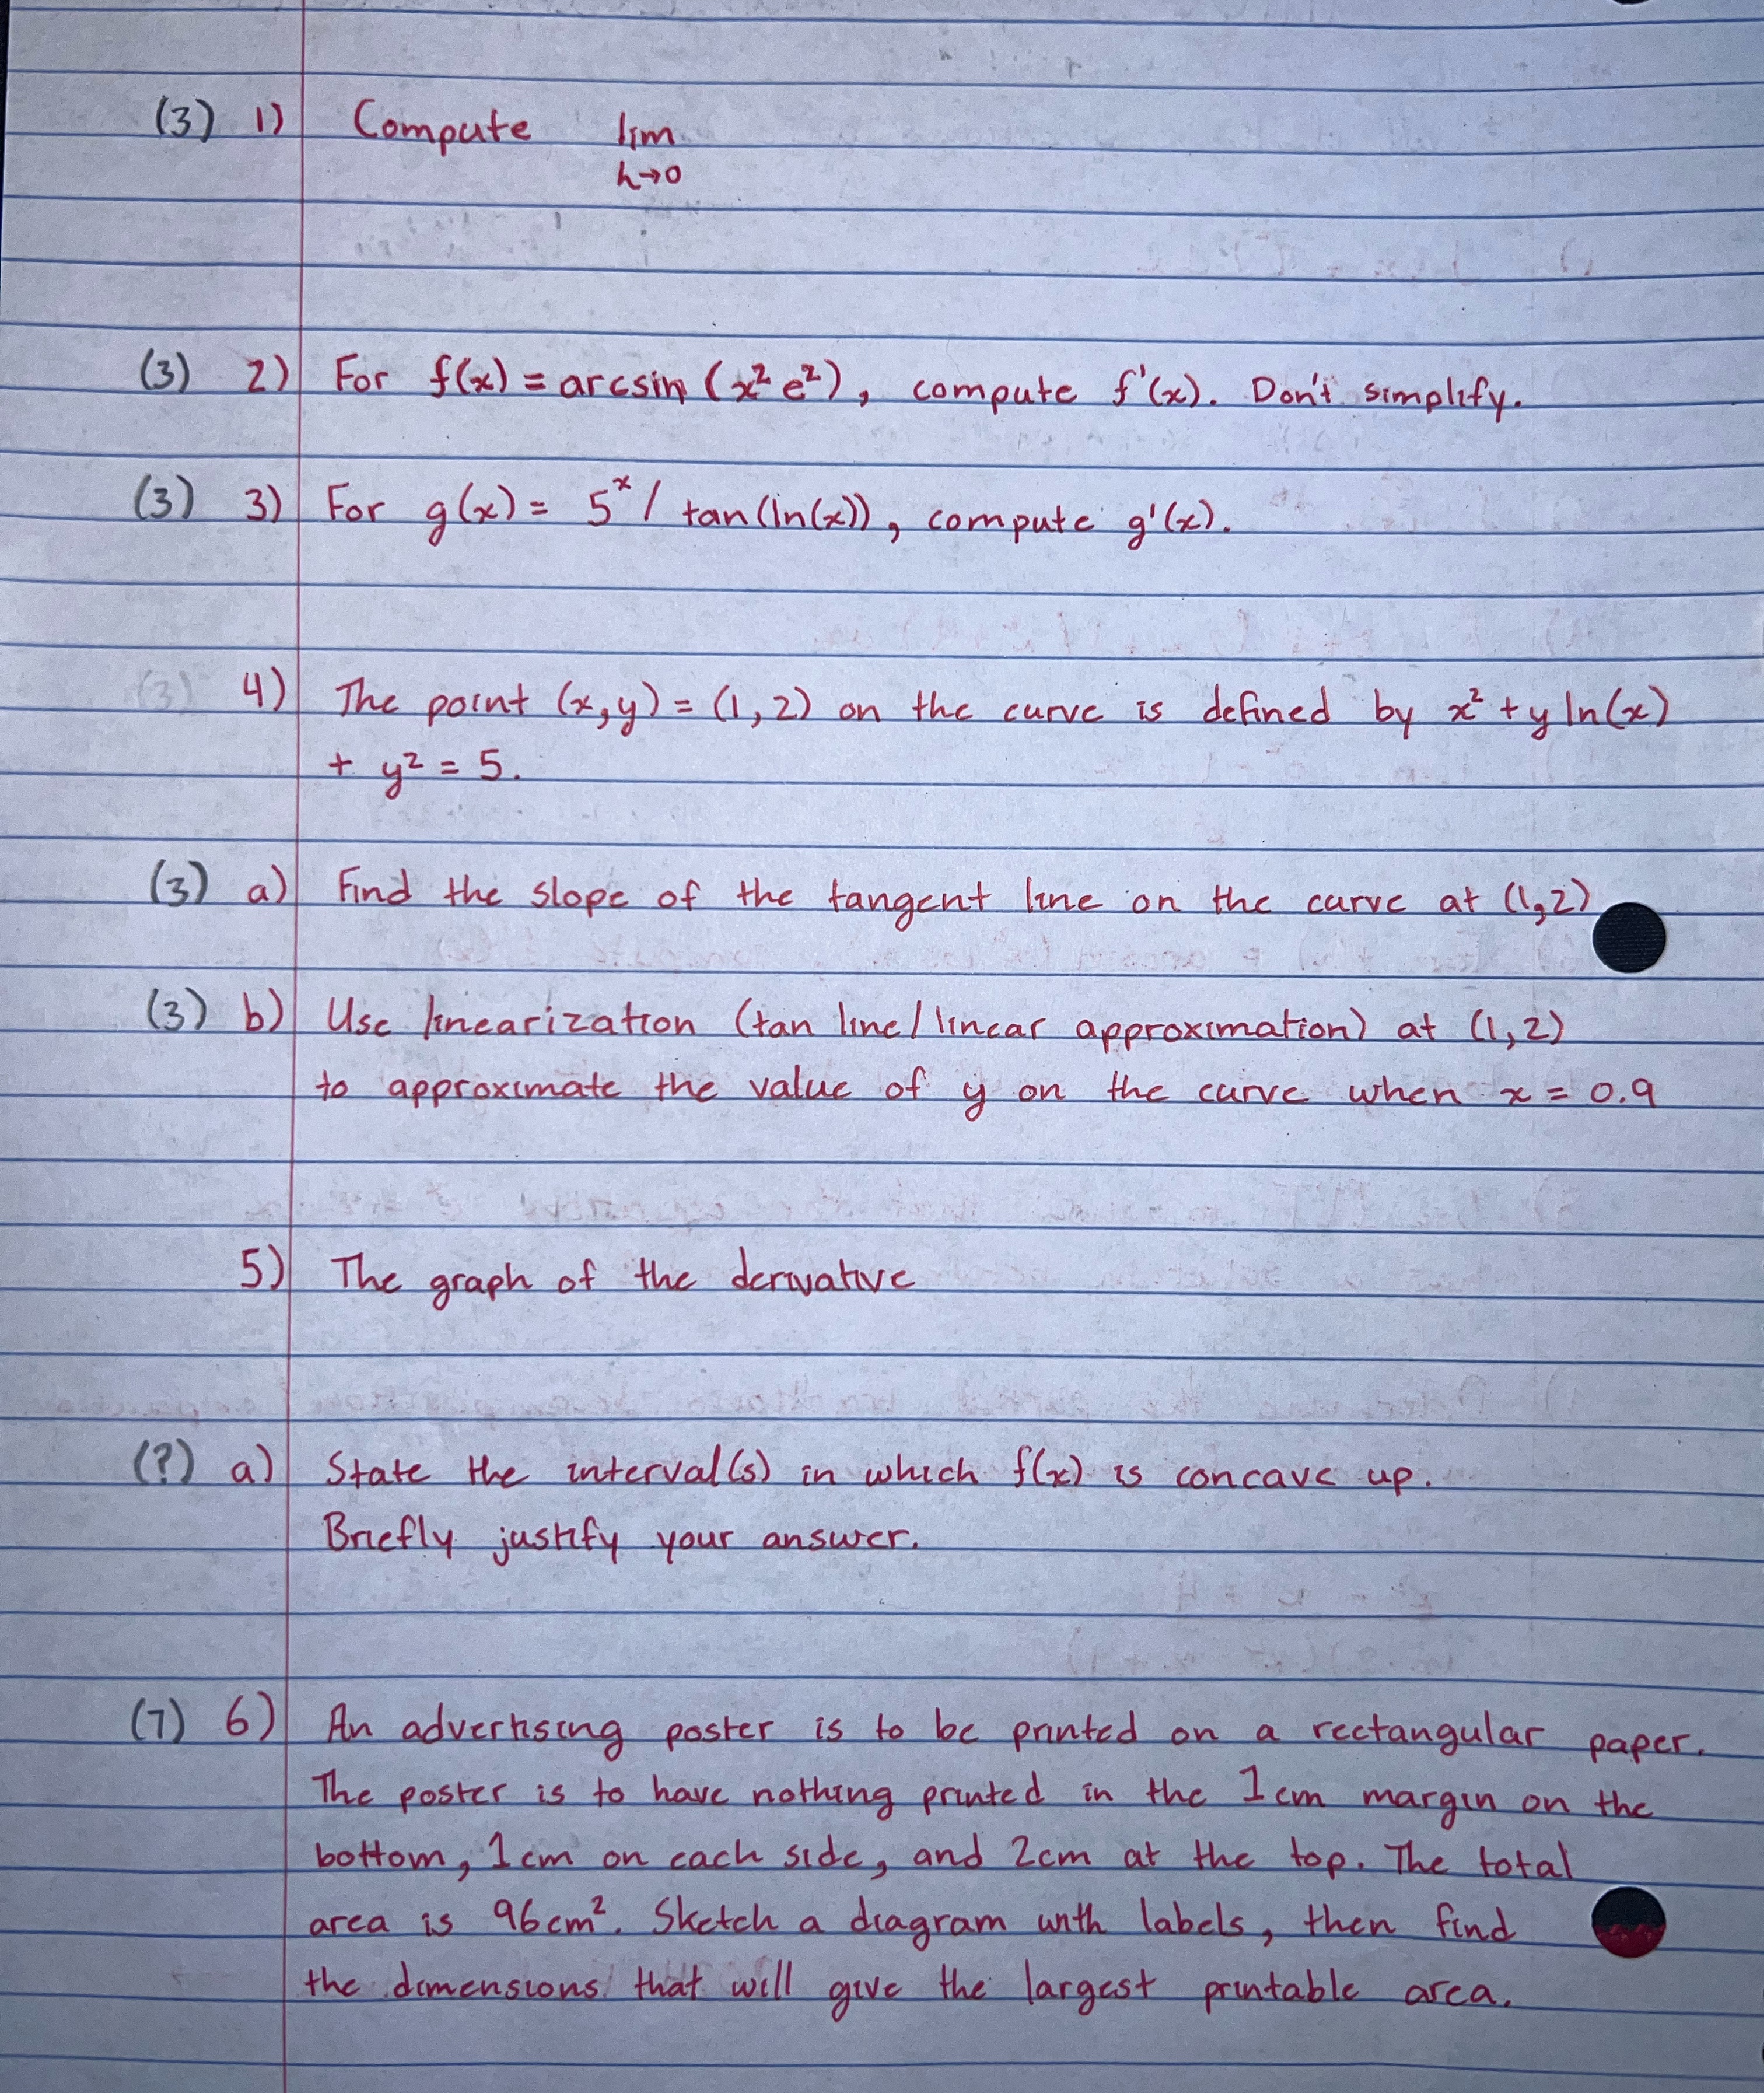 (3) 1) Compute lim
h→0
(3) 2) For f(x) = arcsin (x² e²), compute f'(x). Don't simplify.
(3) 3) For g(x) = 5ˣ / tan(ln(x)), compute g'(x).
(3) 4) The point (x,y) = (1, 2) on the curve is defined by x² + y ln(x)
+ y² = 5.
(3) a) Find the slope of the tangent line on the curve at (1,2)
(3) b) Use linearization (tan line/linear approximation) at (1,2)
to approximate the value of y on the curve when x = 0.9
5) The graph of the derivative
(?) a) State the interval(s) in which f(x) is concave up.
Briefly justify your answer.
(7) 6) An advertising poster is to be printed on a rectangular paper.
The poster is to have nothing printed in the 1cm margin on the
bottom, 1cm on each side, and 2cm at the top. The total
area is 96cm². Sketch a diagram with labels, then find
the dimensions that will give the largest printable area.